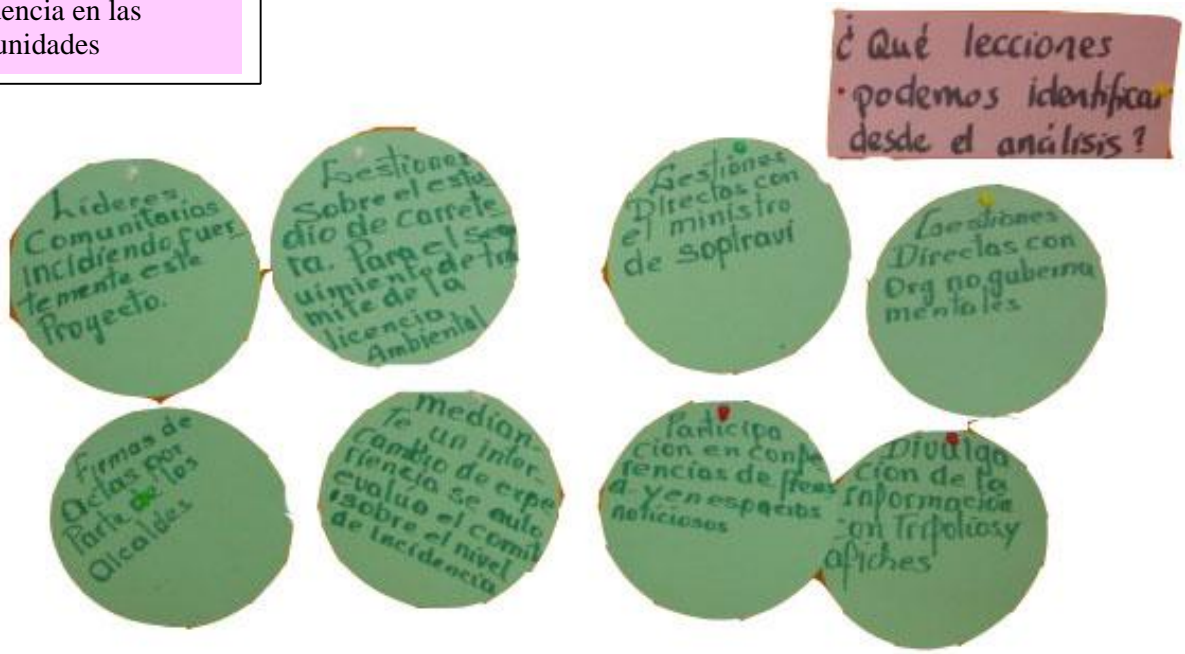 dencia en las
unidades
¿Qué lecciones
podemos identificar
desde el análisis?
Líderes
Comunitarios
Incidiendo fuer_
temente este
Proyecto.
Gestiones
Sobre el estu
dio de carrete
ra. Para el seg
uimiento de trá
mite de la
licencia
Ambiental
Gestiones
Directas con
el ministro
de soptraví
Gestiones
Directas con
Org no guberna
mentales
Firmas de
Actas por
Parte de los
Alcaldes
median_
Te un inter_
cambio de expe
riencia se auto
evaluo el comit
sobre el nivel
de incidencia
Participa
ción en confe
rencias de Prens
a y en espacios
noticiosos
Divulga
ción de la
Información
con Trifolios y
afiches